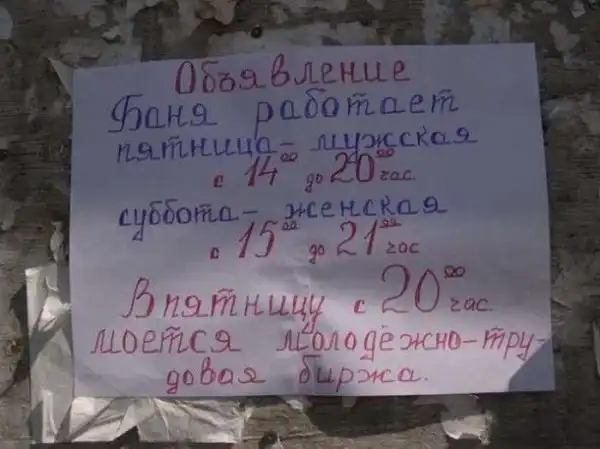 Объявление
Баня работает
пятница - мужская
с 14⁰⁰ до 20⁰⁰ час.
суббота - женская
с 15⁰⁰ до 21⁰⁰ час
В пятницу с 20⁰⁰ час.
моется молодёжно-тру-
довая биржа.